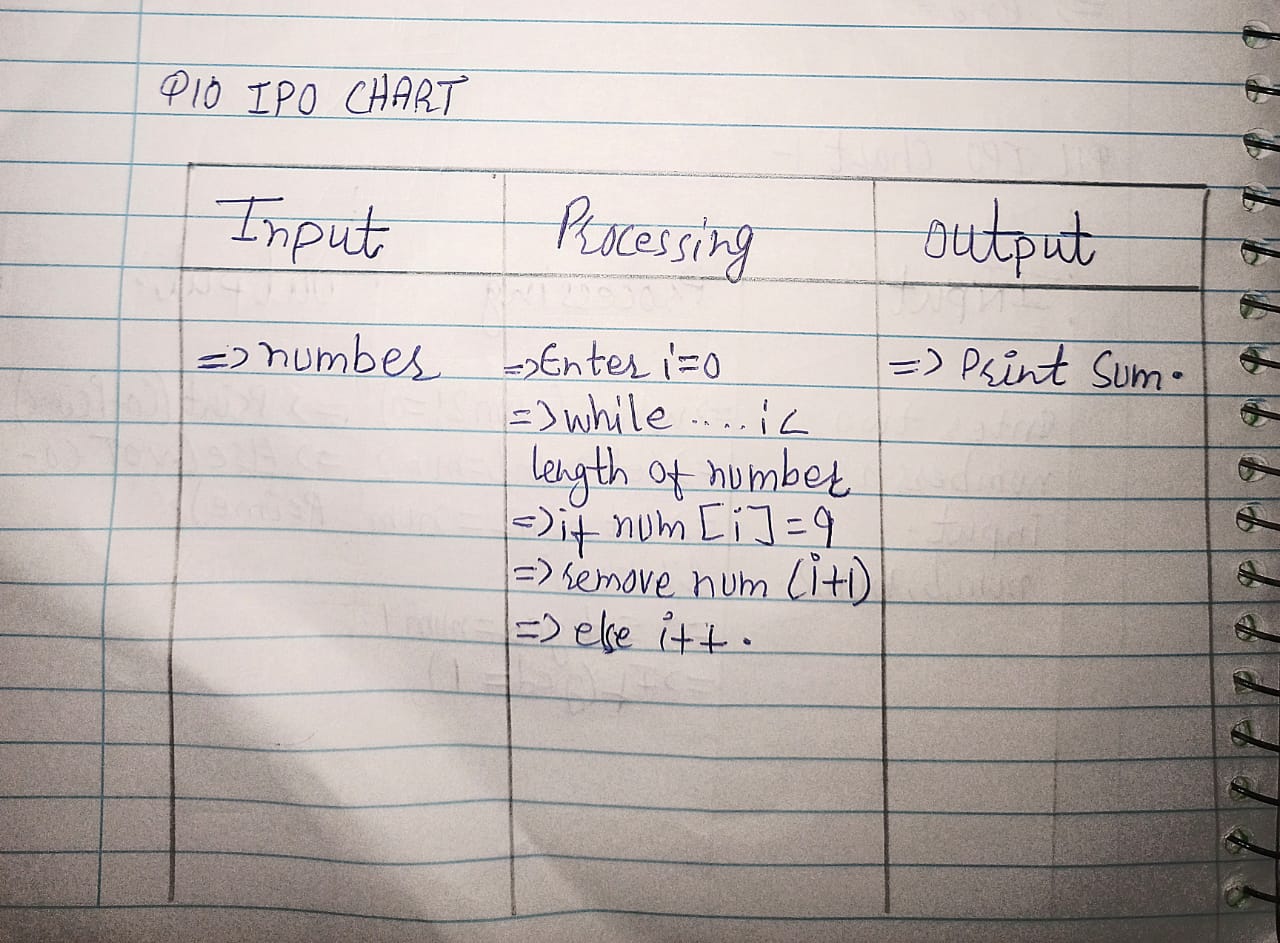 Q10 IPO CHART
Input Processing output
=> number =>Enter i=0 => Print Sum.
=> while ..... i<
length of number
=> if num [i] = 9
=> remove num (i+1)
=> else i++.